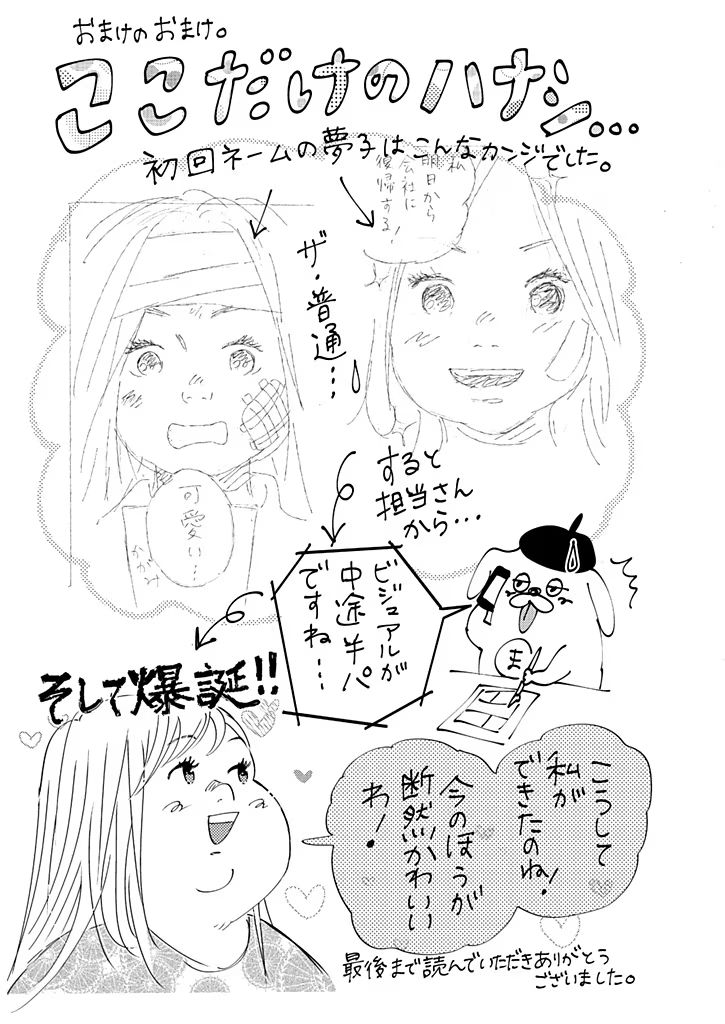 おまけのおまけ。
ここだけのハナシ...
初回ネームの夢子はこんなカンジでした。
私
明日から
会社に
復帰する!
ザ・普通…
可愛い…
かがみ
すると
担当さん
から…
ビジュアルが
中途半パ
ですね…
ま
そして爆誕!!
こうして
私が
できたのね!
今のほうが
断然かわいい
わ!
最後まで読んでいただきありがとう
ございました。